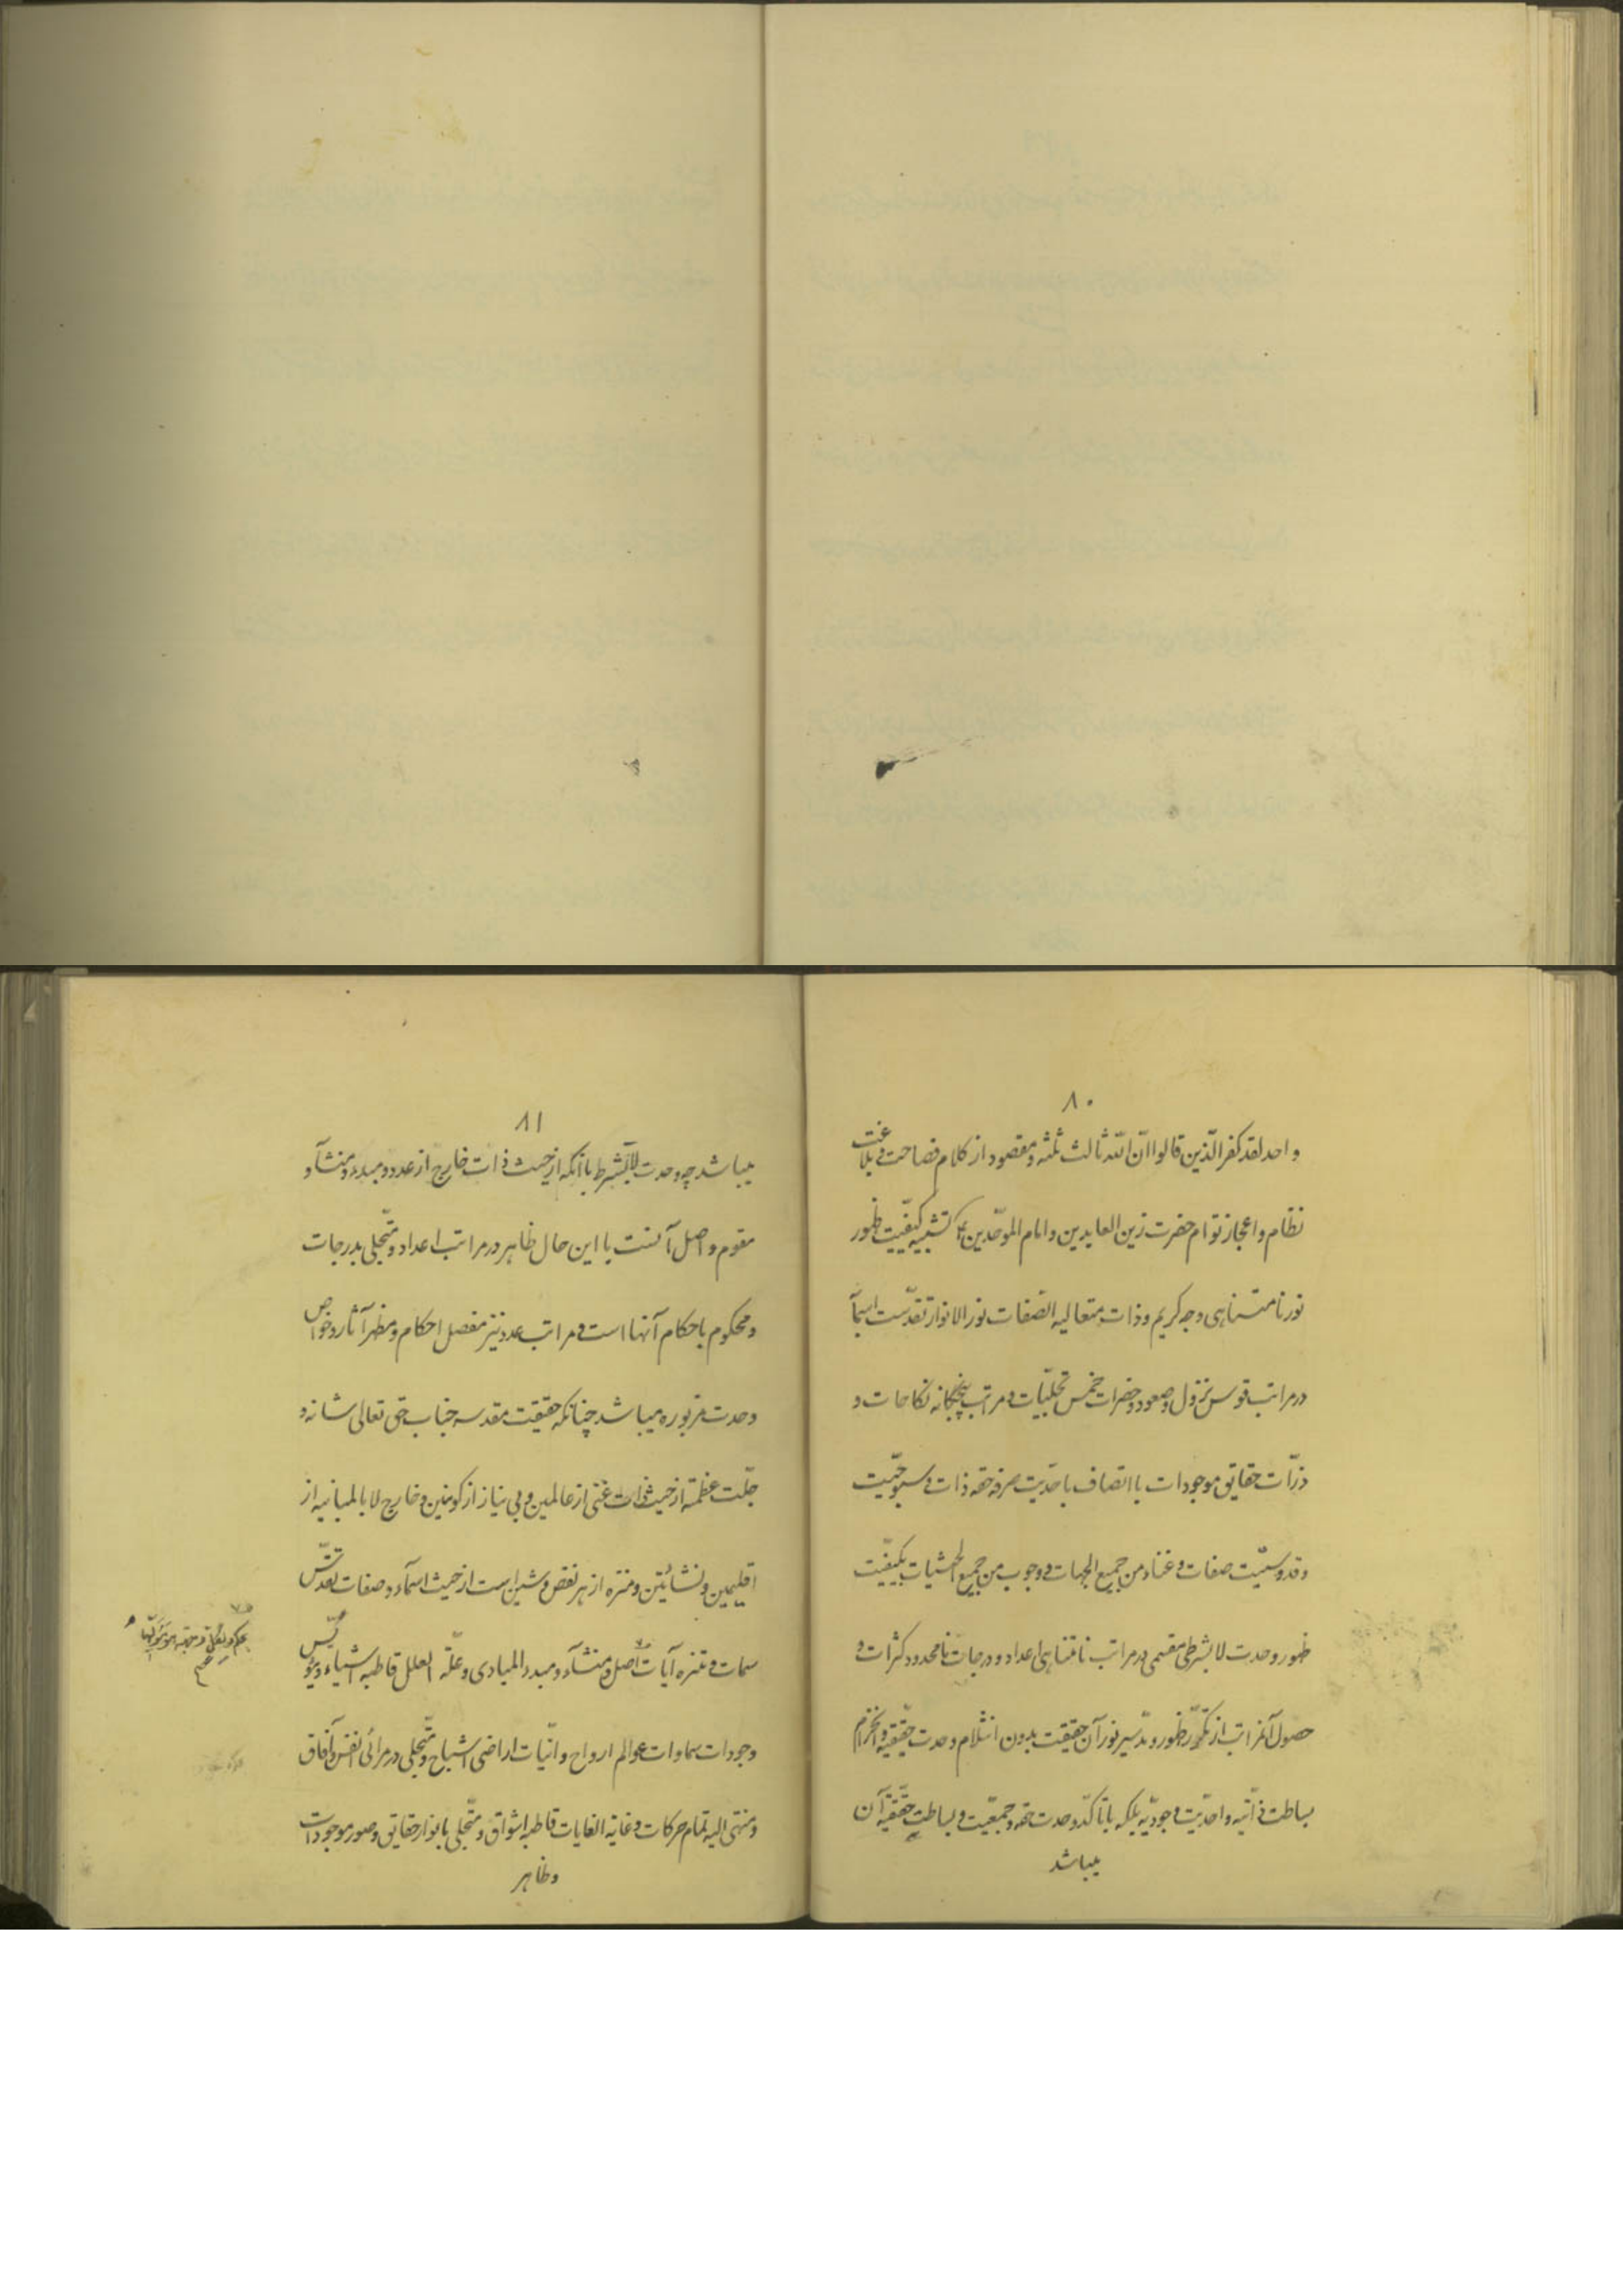 ۸۰
واحد لقد کفر الّذین قالوا انّ اللّه ثالث ثلثه و مقصود از کلام فصاحت و بلاغت
نظام و اعجاز توام حضرت زین العابدین و امام الموحّدین ع تشبیه کیفّیت ظهور
نور نامتناهی وجه کریم و ذات متعالیه الصّفات نور الانوار تقدّست اسمآ
در مراتب قوس نزول و صعود و حضرات خمس تجلّیات و مراتب پنجگانه نکاحات و
ذرّات حقایق موجودات با اتصاف باحدّیت صرفه حقه ذات و سبوحیّت
و قدوسیّت صفات و غناء من جمیع الجهات و وجوب من جمیع الحیثیات بکیفّیت
ظهور وحدت لابشرطی مقسمی در مراتب نامتناهی اعداد و درجات نامحدود کثرات و
حصول آنمراتب از تکرّر ظهور و سیر نور آن حقیقت بدون انثلام وحدت حقیقیه و انخرام
بساطت ذاتیه و احدّیت وجودیّه بلکه با تأکّد وحدت حقه و جمعیّت و بساطت حقیقیه آن
میباشد
۸۱
میباشد چه وحدت لابشرط با آنکه از حیث ذات خارج از عدد و مبدء و منشآء و
مقوم و اصل آنست با این حال ظاهر در مراتب اعداد و متجلّی بدرجات
و محکوم باحکام آنها است و مراتب عدد نیز مفصل احکام و مظهر آثار و خواص
وحدت مزبوره میباشد چنانکه حقیقت مقدسه جناب حق تعالی شانه و
جلّت عظمته از حیث ذات غنی از عالمین و بی نیاز از کونین و خارج لا بالمباینه از
اقلیمین و نشائتین و منزه از هر نقص و شین است از حیث اسمآء و صفات تقدّس
سمات و تنزه آیات اصل و منشآء و مبدء المبادی و علّة العلل قاطبه اشیاء
وجودات سماوات عوالم ارواح و انیّات اراضی اشباح و متجلّی در مرائی انفس و آفاق
و منتهی الیه تمام حرکات و غایة الغایات قاطبه اشواق و متجلّی بانوار حقایق و صور موجودات
و ظاهر